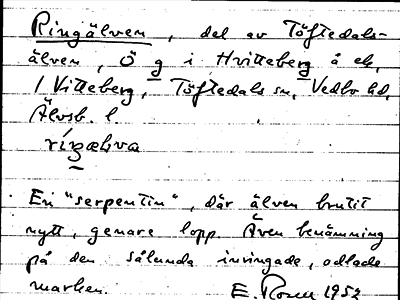 Ringälven, del av Töftedals-
älven, Ö g i Hvitteberg å ek,
1 Vitteberg, Töftedals sn, Vedbo hd,
Älvsb. l.
ríŋælva
En "serpentin", där älven brutit
nytt, genare lopp. Även benämning
på den sålunda inringade, odlade
marken. E. Rosen 1952